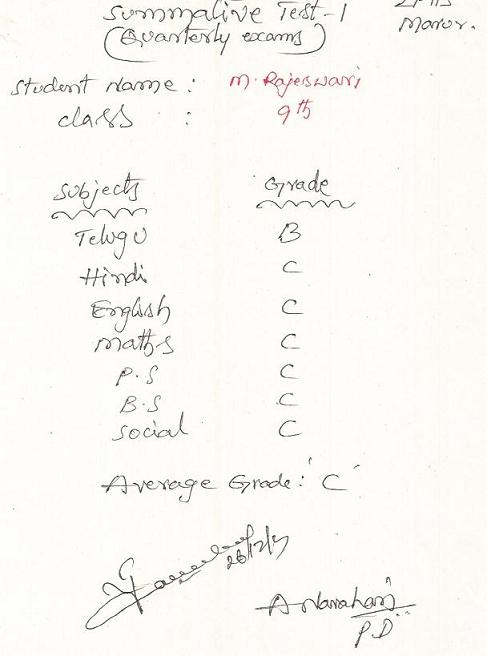 Summative Test-1
(Quarterly exams)
Marur.
Student Name : M. Rajeswari
class : 9th
Subjects Grade
Telugu B
Hindi C
English C
Maths C
P.S C
B.S C
Social C
Average Grade: 'C'
A Narahari
P.D